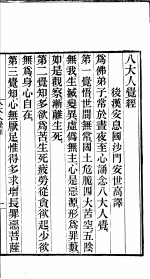 八大人覺經
後漢安息國沙門安世高譯
為佛弟子常於晝夜至心誦念八大人覺
第一覺悟世間無常國土危脆四大苦空五陰
無我生滅變異虛偽無主心是惡源形為罪藪
如是觀察漸離生死
第二覺知多欲為苦生死疲勞從貪欲起少欲
無為身心自在
第三覺知心無厭足惟得多求增長罪惡菩薩